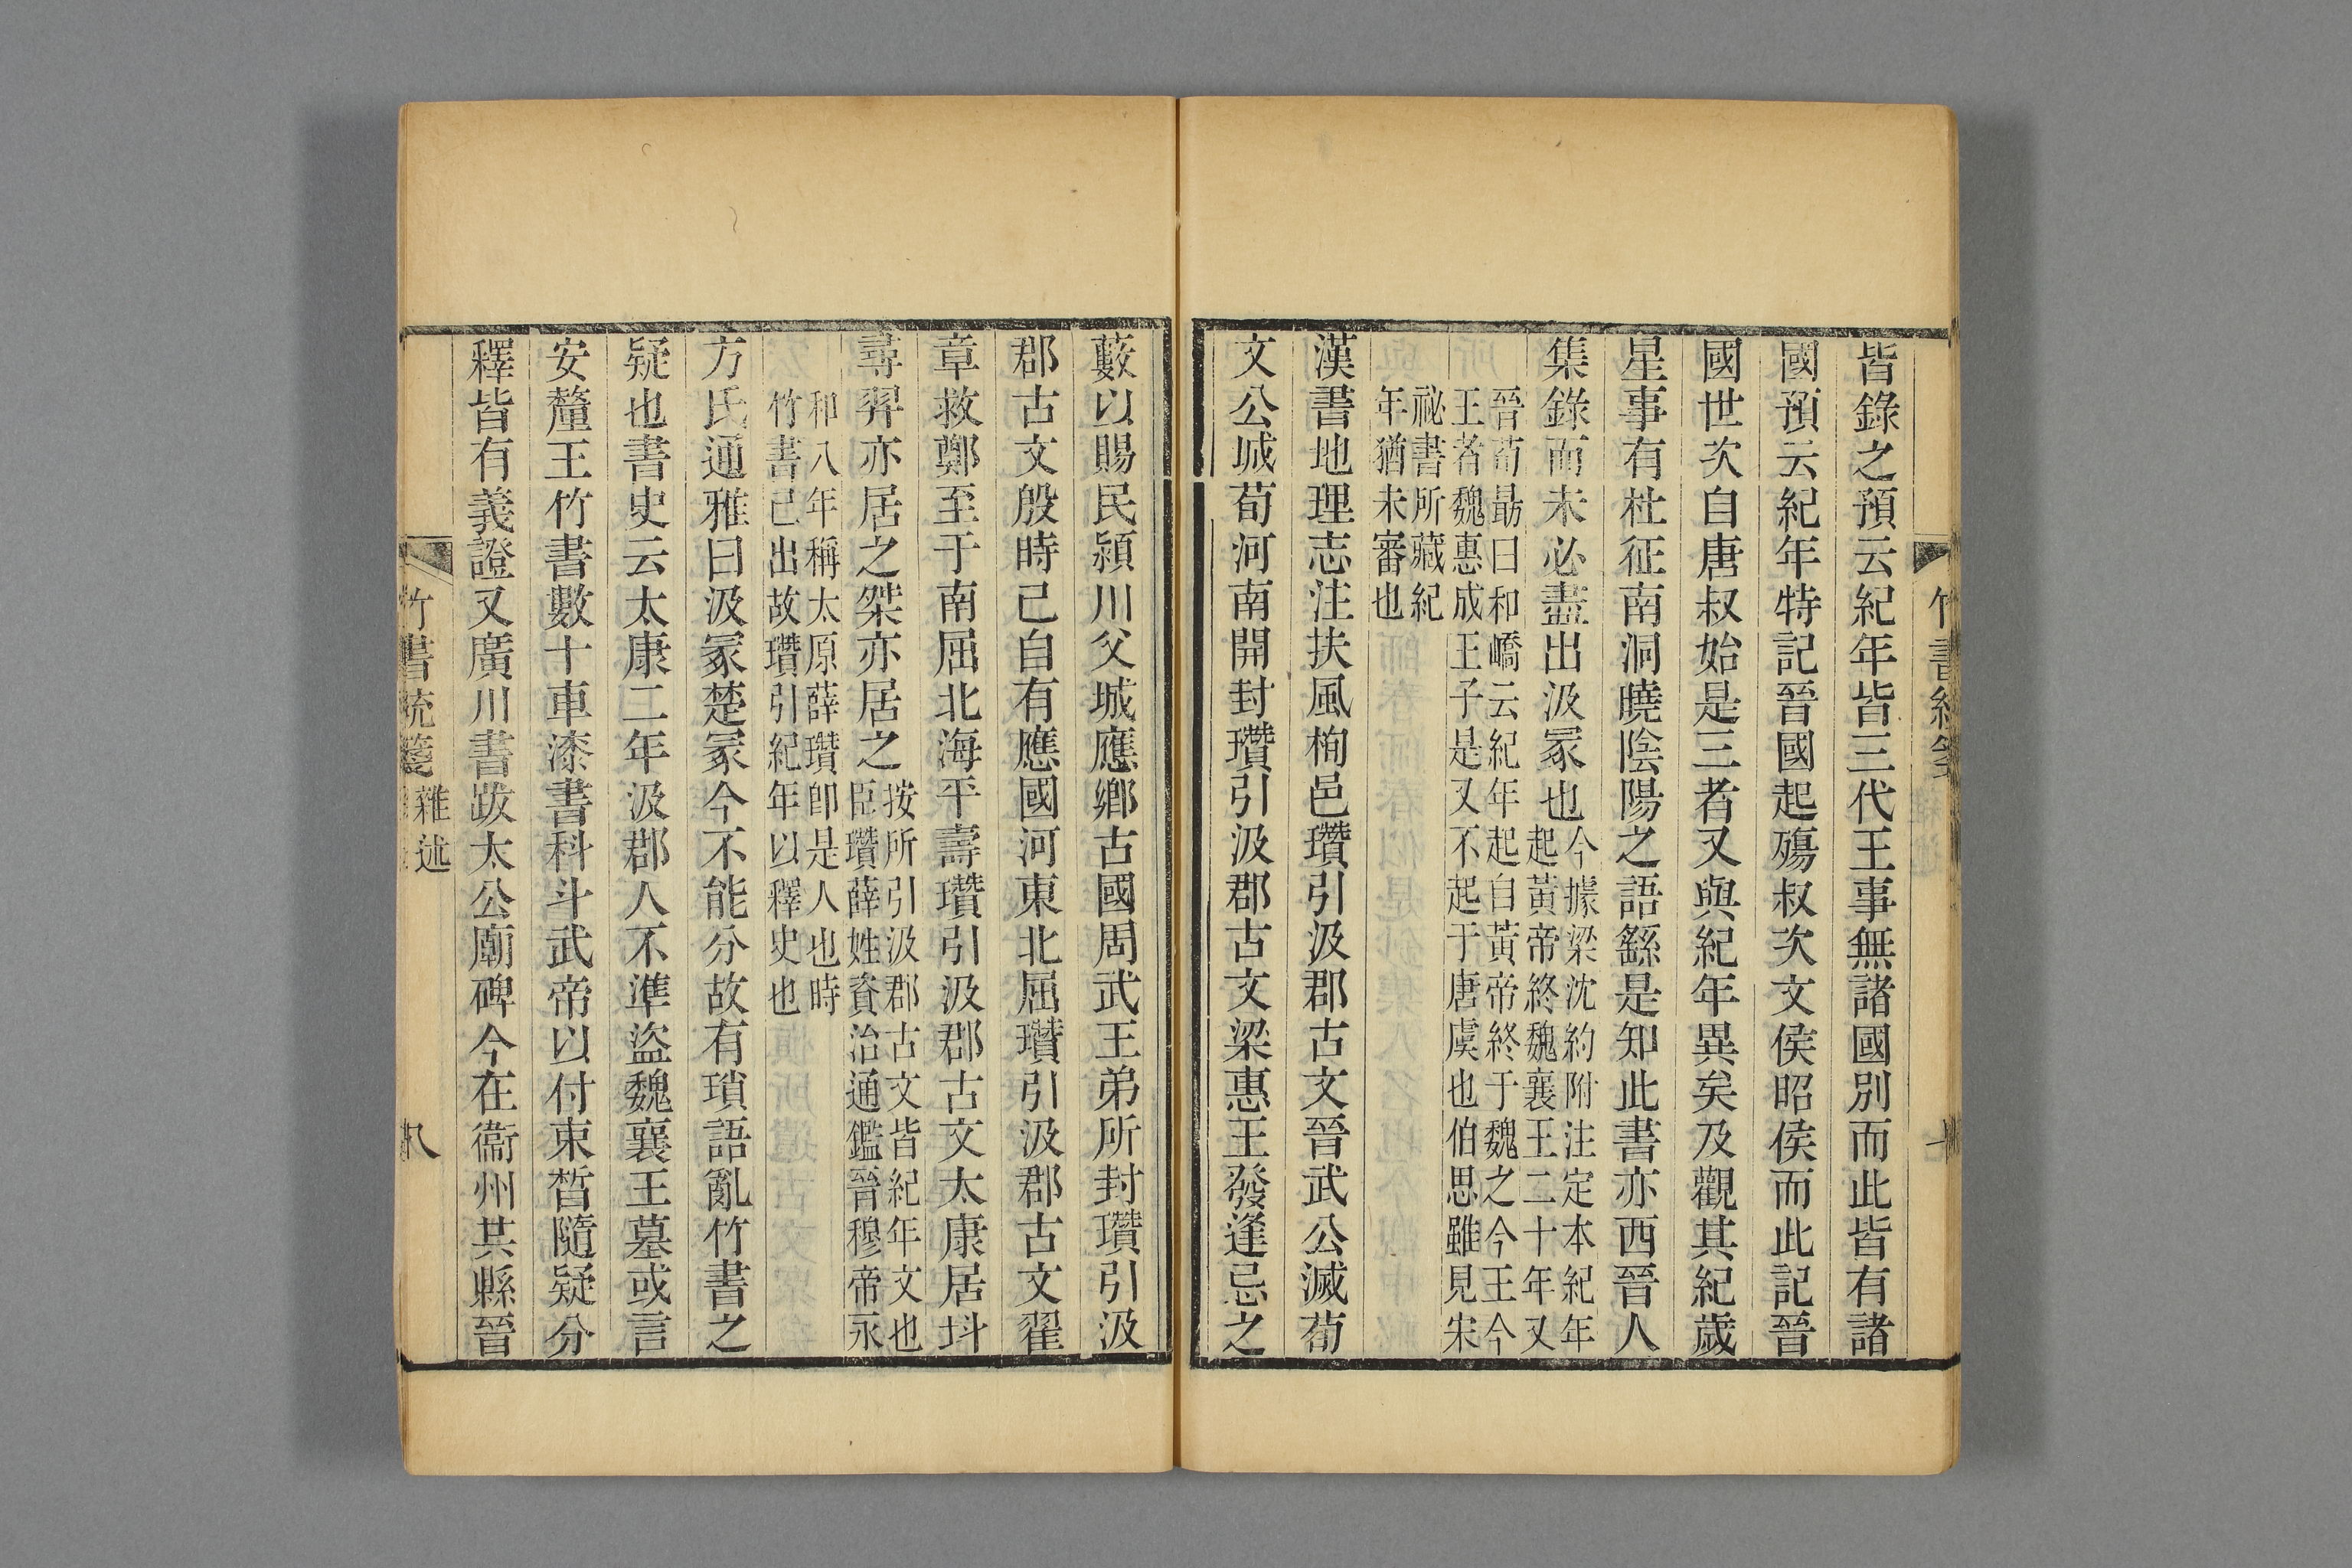 皆錄之預云紀年皆三代王事無諸國別而此皆有諸
國預云紀年特記晉國起殤叔次文侯昭侯而此記晉
國世次自唐叔始是三者又與紀年異矣及觀其紀歲
星事有杜征南洞曉陰陽之語繇是知此書亦西晉人
集錄而未必盡出汲冢也
今據梁沈約附注定本紀年
起黃帝終魏襄王二十年又
晉荀勗曰和嶠云紀年起自黃帝終于魏之今王今
王者魏惠成王子是又不起于唐虞也伯思雖見宋
祕書所藏紀
年猶未審也
漢書地理志注扶風栒邑瓚引汲郡古文晉武公滅荀
文公城荀河南開封瓚引汲郡古文梁惠王發逢忌之
藪以賜民潁川父城應鄉古國周武王弟所封瓚引汲
郡古文殷時已自有應國河東北屈瓚引汲郡古文翟
章救鄭至于南屈北海平壽瓚引汲郡古文太康居斟
尋羿亦居之桀亦居之
按所引汲郡古文皆紀年文也
臣瓚薛姓資治通鑑晉穆帝永
和八年稱太原薛瓚卽是人也時
竹書已出故瓚引紀年以釋史也
方氏通雅曰汲冢楚冢今不能分故有瑣語亂竹書之
疑也書史云太康二年汲郡人不準盜魏襄王墓或言
安釐王竹書數十車漆書科斗武帝以付束晳隨疑分
釋皆有義證又廣川書跋太公廟碑今在衞州其縣晉
竹書統箋
雜述
八